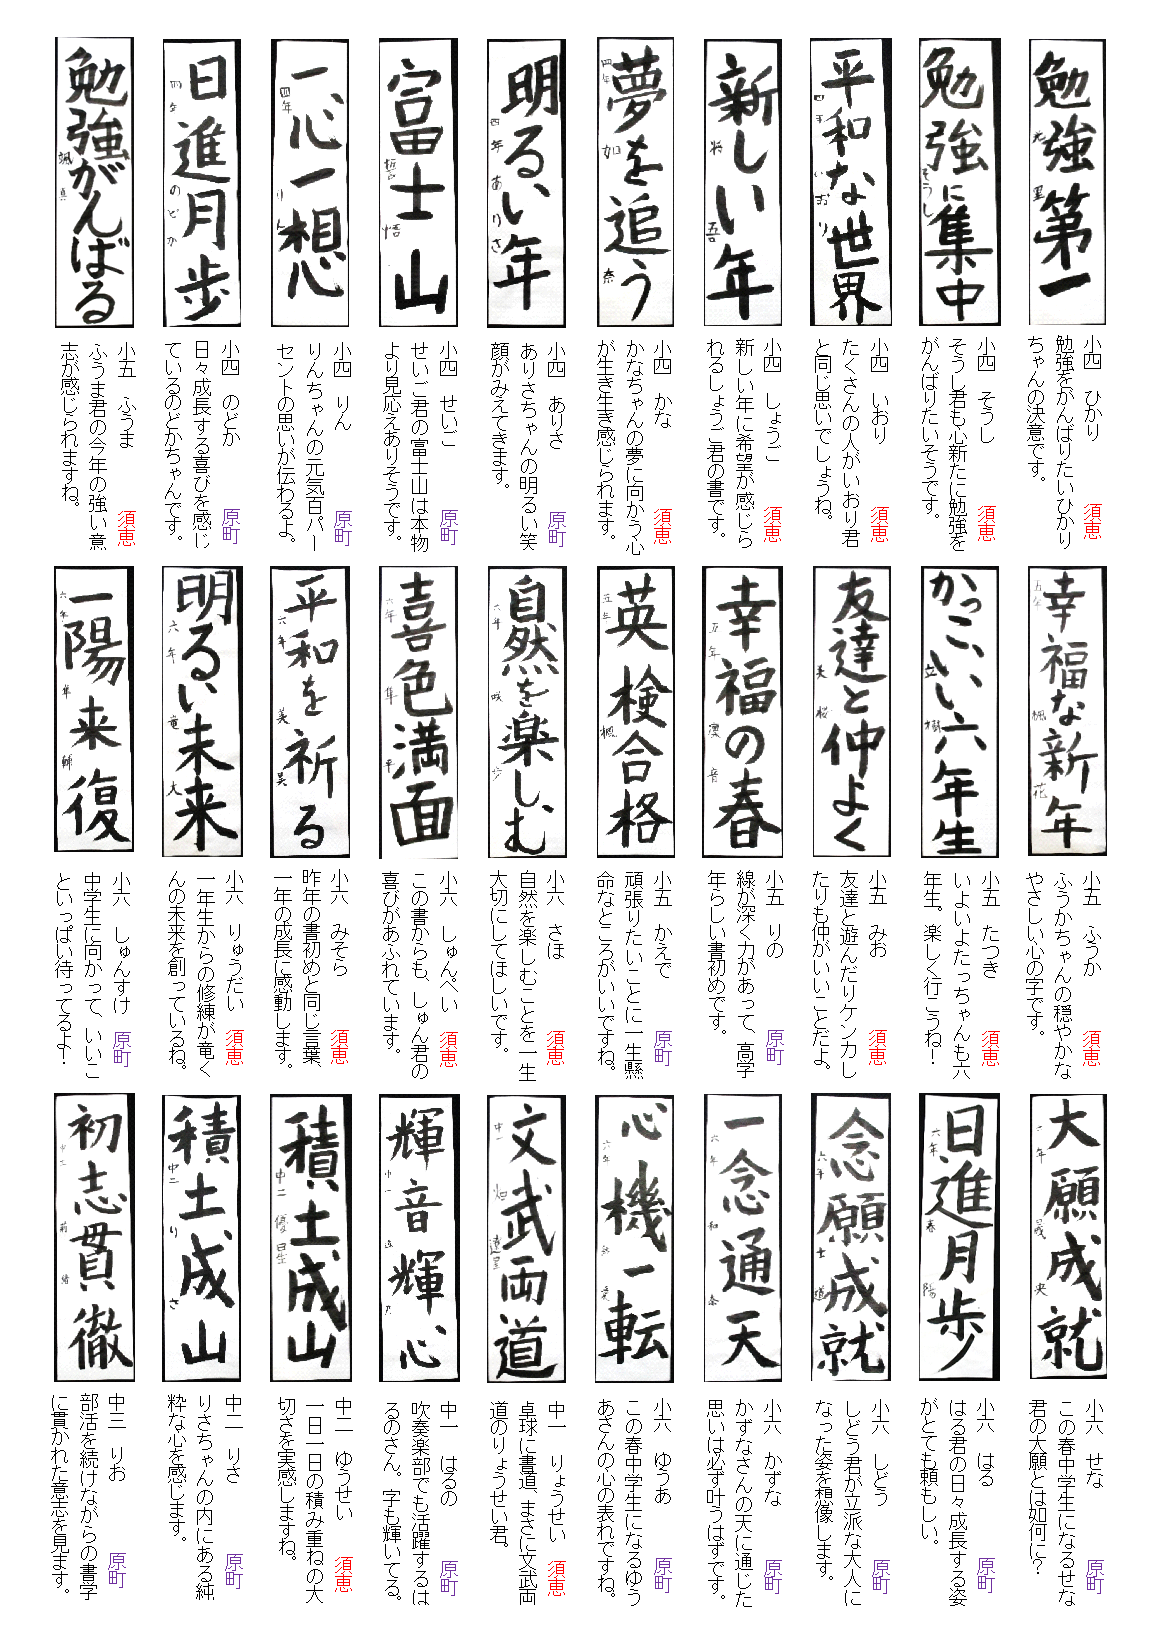 勉強第一
小四　ひかり　須恵
勉強をがんばりたいひかり
ちゃんの決意です。
勉強に集中
そうし
小四　そうし　須恵
そうし君も心新たに勉強を
がんばりたいそうです。
平和な世界
四年　いおり
小四　いおり　須恵
たくさんの人がいおり君
と同じ思いでしょうね。
新しい年
将吾
小四　しょうご　須恵
新しい年に希望が感じら
れるしょうご君の書です。
夢を追う
四年　如奈
小四　かな　須恵
かなちゃんの夢に向かう心
が生き生き感じられます。
明るい年
四年　ありさ
小四　ありさ　原町
ありさちゃんの明るい笑
顔がみえてきます。
富士山
小四　せいご　原町
せいご君の富士山は本物
より見応えありそうです。
一心一想
四年　りん
小四　りん　原町
りんちゃんの元気百パー
セントの思いが伝わるよ。
日進月歩
四年　のどか
小四　のどか　原町
日々成長する喜びを感じ
ているのどかちゃんです。
勉強がんばる
颯真
小五　ふうま　須恵
ふうま君の今年の強い意
志が感じられますね。
幸福な新年
五年　楓花
小五　ふうか　須恵
ふうかちゃんの穏やかな
やさしい心の字です。
かっこいい六年生
立樹
小五　たつき　須恵
いよいよたっちゃんも六
年生。楽しく行こうね！
友達と仲よく
美桜
小五　みお　須恵
友達と遊んだりケンカし
たりも仲がいいことだよ。
幸福の春
五年　凛音
小五　りの　原町
線が深く力があって、高学
年らしい書初めです。
英検合格
五年　楓
小五　かえで　原町
頑張りたいことに一生懸
命なところがいいですね。
自然を楽しむ
六年　咲歩
小六　さほ　須恵
自然を楽しむことを一生
大切にしてほしいです。
喜色満面
六年　隼平
小六　しゅんぺい　須恵
この書からも、しゅん君の
喜びがあふれています。
平和を祈る
六年　美昊
小六　みそら　須恵
昨年の書初めと同じ言葉、
一年の成長に感動します。
明るい未来
六年　竜大
小六　りゅうだい　須恵
一年生からの修練が竜く
んの未来を創っているね。
一陽来復
六年
小六　しゅんすけ　原町
中学生に向かって、いいこ
といっぱい待ってるよ！
大願成就
小六　せな　原町
この春中学生になるせな
君の大願とは如何に？
日進月歩
六年　春陽
小六　はる　原町
はる君の日々成長する姿
がとても頼もしい。
念願成就
六年　士道
小六　しどう　原町
しどう君が立派な大人に
なった姿を想像します。
一念通天
六年　和奈
小六　かずな　原町
かずなさんの天に通じた
思いは必ず叶うはずです。
心機一転
六年
小六　ゆうあ　原町
この春中学生になるゆう
あさんの心の表れですね。
文武両道
中一
中一　りょうせい　須恵
卓球に書道、まさに文武両
道のりょうせい君。
輝音輝心
中一
中一　はるの　原町
吹奏楽部でも活躍するは
るのさん。字も輝いてる。
積土成山
中二　優星
中二　ゆうせい　須恵
一日一日の積み重ねの大
切さを実感しますね。
積土成山
中二　りさ
中二　りさ　原町
りさちゃんの内にある純
粋な心を感じます。
初志貫徹
中三　りお　原町
部活を続けながらの書学
に貫かれた意志を見ます。